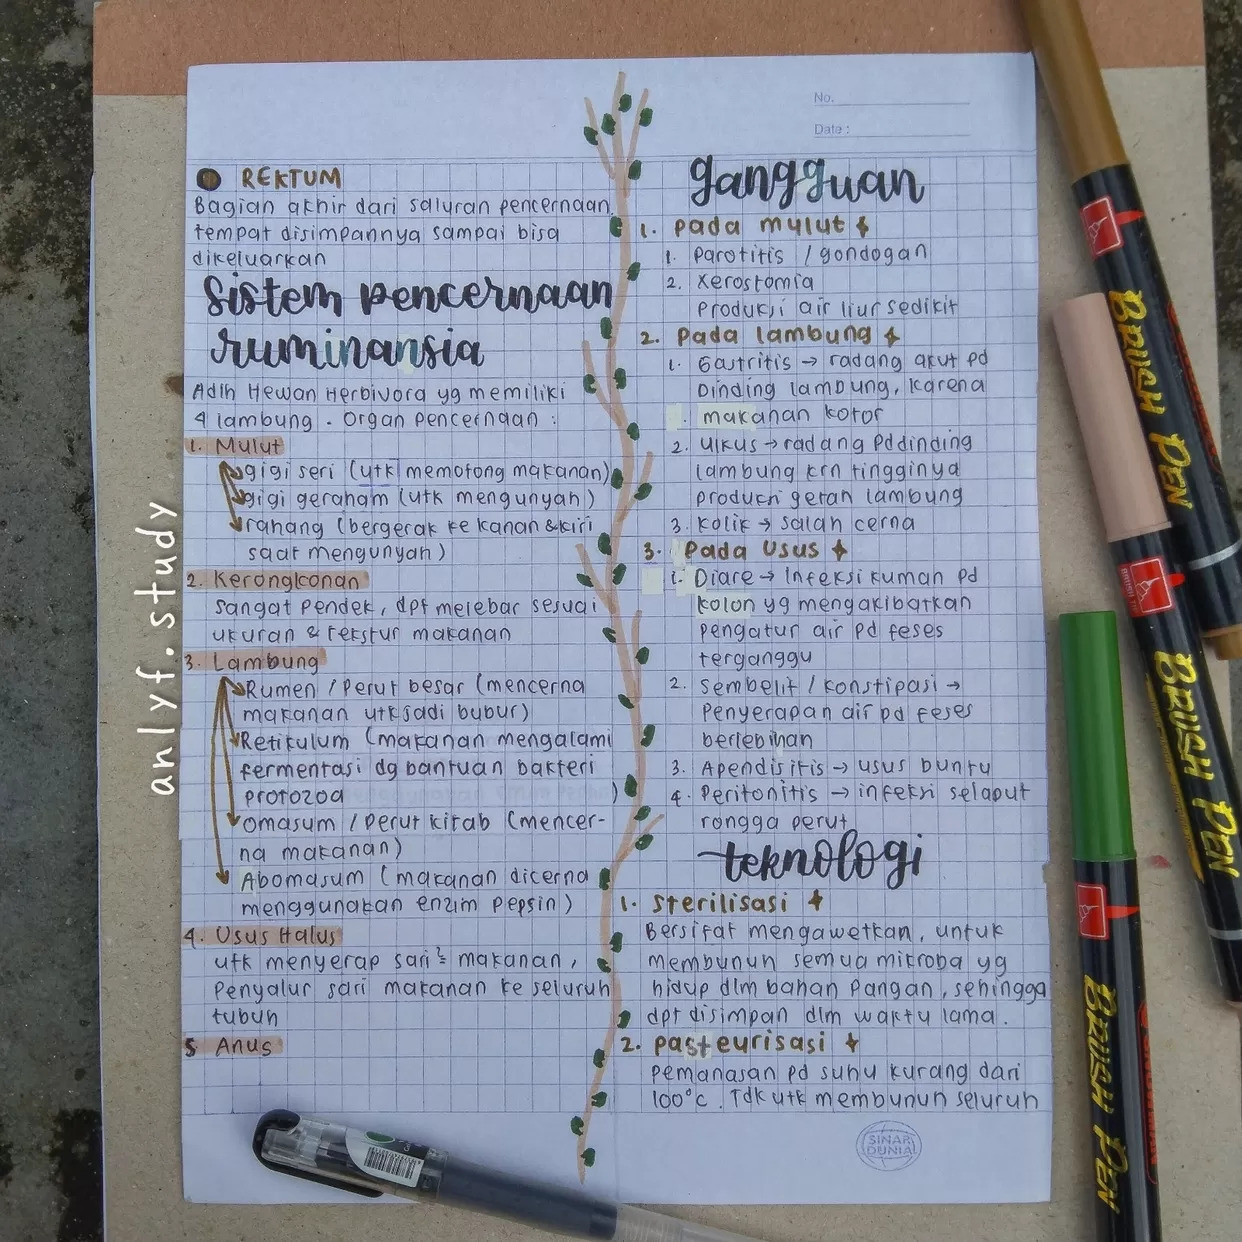 No.
Date :
REKTUM
Bagian akhir dari saluran pencernaan,
tempat disimpannya sampai bisa
dikeluarkan
Sistem pencernaan
ruminansia
Adlh Hewan Herbivora yg memiliki
4 lambung. Organ pencernaan :
1. Mulut
gigi seri (utk memotong makanan)
gigi geraham (utk mengunyah)
rahang (bergerak ke kanan & kiri
saat mengunyah)
2. Kerongkonan
sangat pendek, dpt melebar sesuai
ukuran & tekstur makanan
3. Lambung
Rumen / Perut besar (mencerna
makanan utk jadi bubur)
Retikulum (makanan mengalami
fermentasi dg bantuan bakteri
protozoa )
Omasum / Perut kitab (mencer-
na makanan)
Abomasum (makanan dicerna
menggunakan enzim pepsin)
4. Usus Halus
utk menyerap sari² makanan,
Penyalur sari makanan ke seluruh
tubuh
5. Anus
gangguan
1. pada mulut
1. Parotitis / gondogan
2. Xerostomia
Produksi air liur sedikit
2. Pada lambung
1. Gastritis → radang akut pd
Dinding lambung, karena
makanan kotor
2. Ulkus → radang Pd dinding
lambung krn tingginya
produksi getah lambung
3. Kolik → salah cerna
3. Pada Usus
1. Diare → Infeksi kuman pd
kolon yg mengakibatkan
pengatur air pd feses
terganggu
2. Sembelit / konstipasi →
Penyerapan air pd feses
berlebihan
3. Apendisitis → usus buntu
4. Peritonitis → infeksi selaput
rongga perut
teknologi
1. Sterilisasi
Bersifat mengawetkan, untuk
membunuh semua mikroba yg
hidup dlm bahan Pangan, sehingga
dpt disimpan dlm waktu lama.
2. pasteurisasi
pemanasan pd suhu kurang dari
100°c. Tdk utk membunuh seluruh
SINAR
DUNIA
anlyf.study
BRUSH PEN
BRUSH PEN
BRUSH PEN